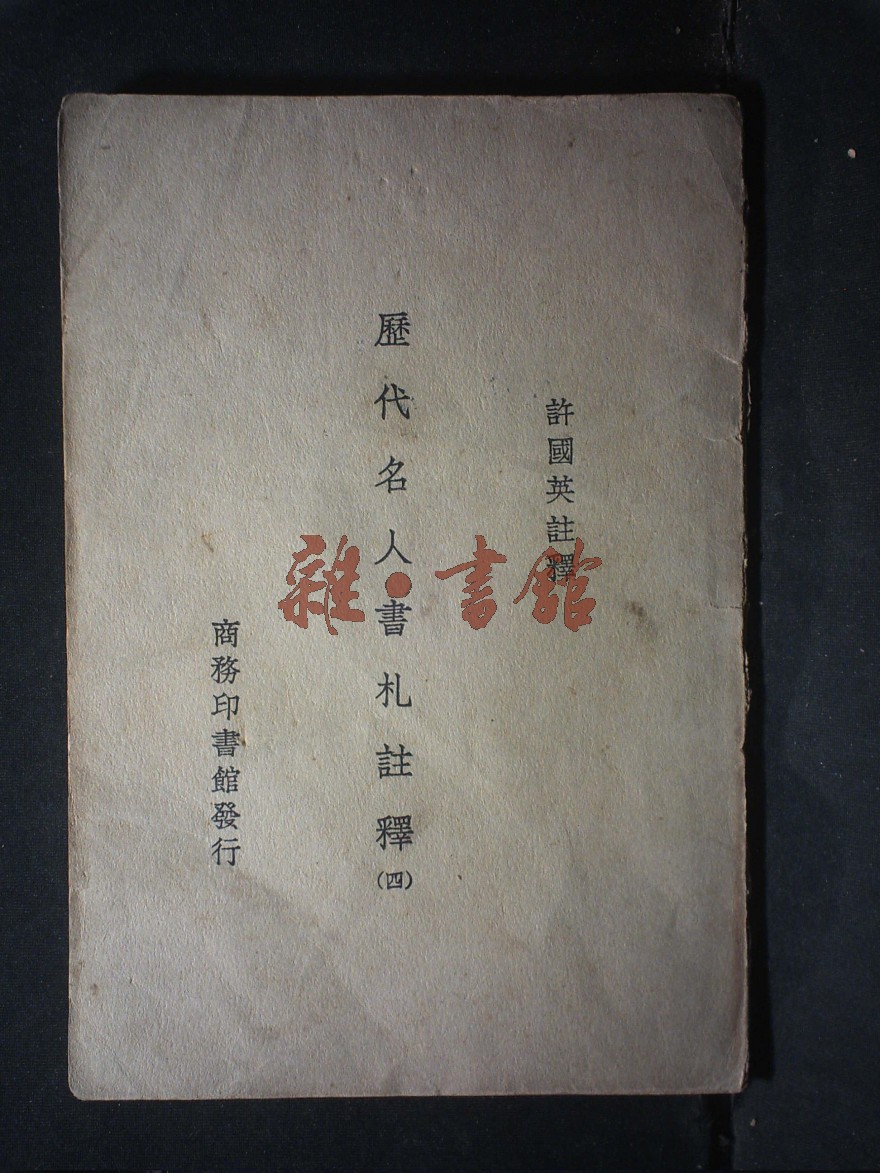 許國英註釋
歷代名人書札註釋(四)
商務印書館發行
雜·書館